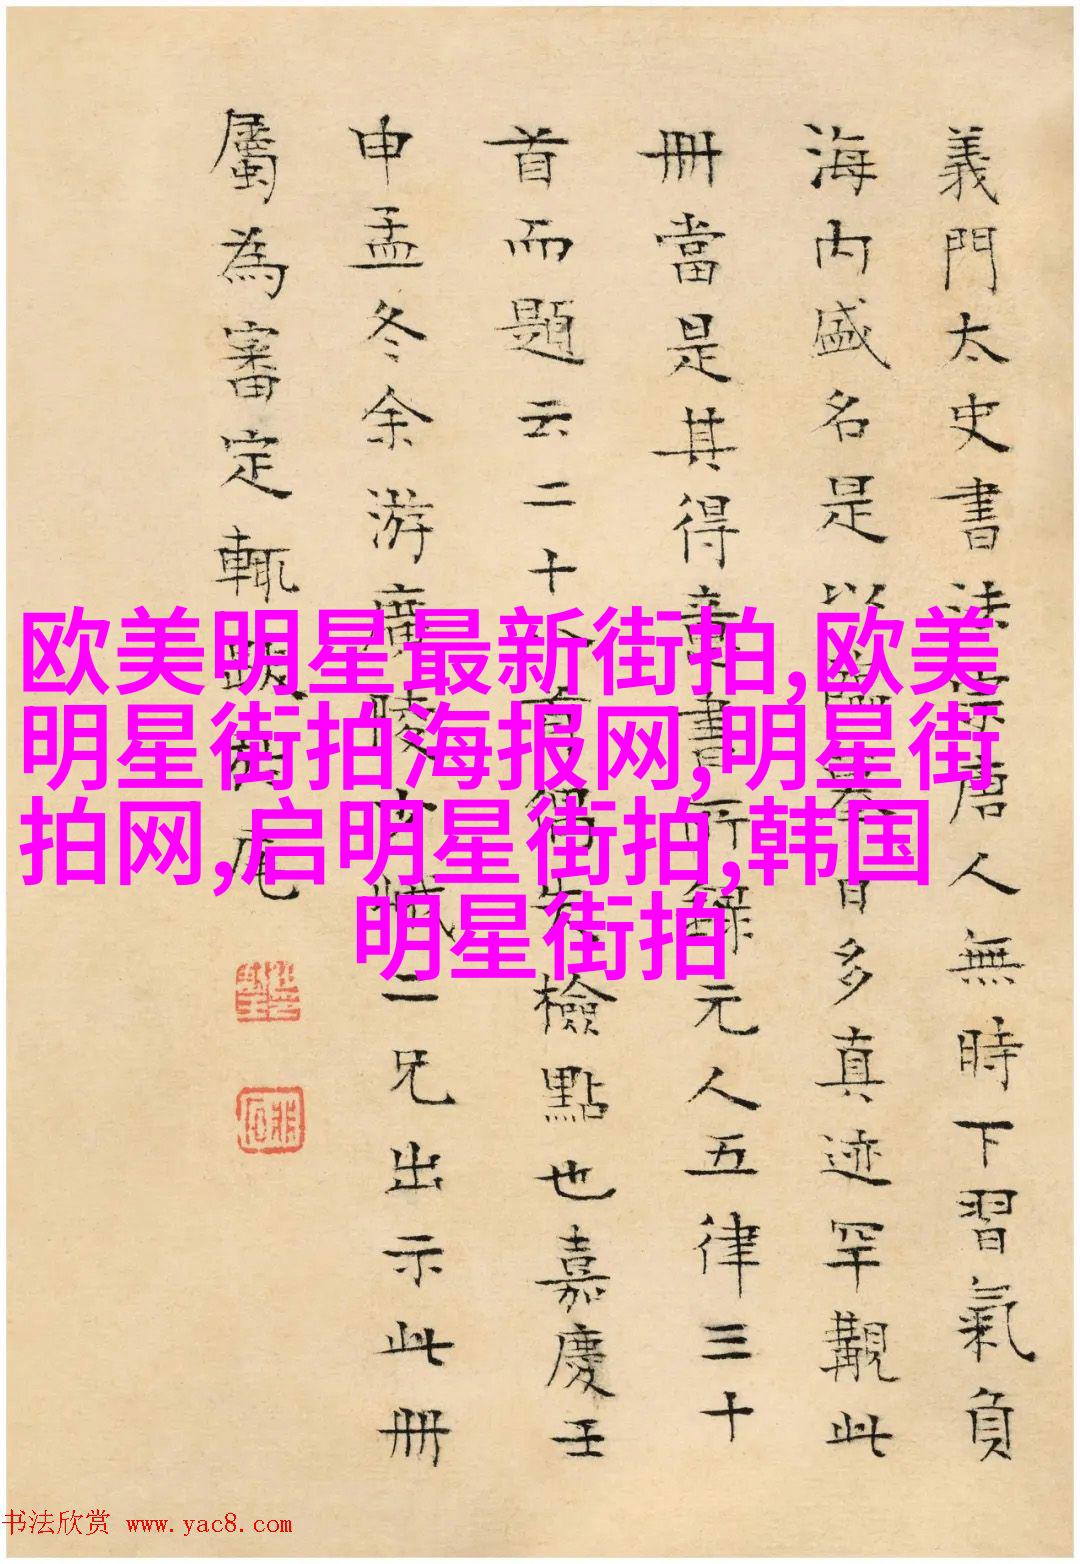 義門太史書法宗唐人無時下習氣負
海内盛名是以臨摹日多真迹罕觏此
冊當是其得意書所錄元人五律三十
首而題云二十 首偶失檢點也嘉慶壬
申孟冬余游廣陵 藏二兄出示此冊
屬為審定輒跋 尾
欧美明星最新街拍,欧美
明星街拍海报网,明星街
拍网,启明星街拍,韩国
明星街拍
书法欣赏 www.yac8.com